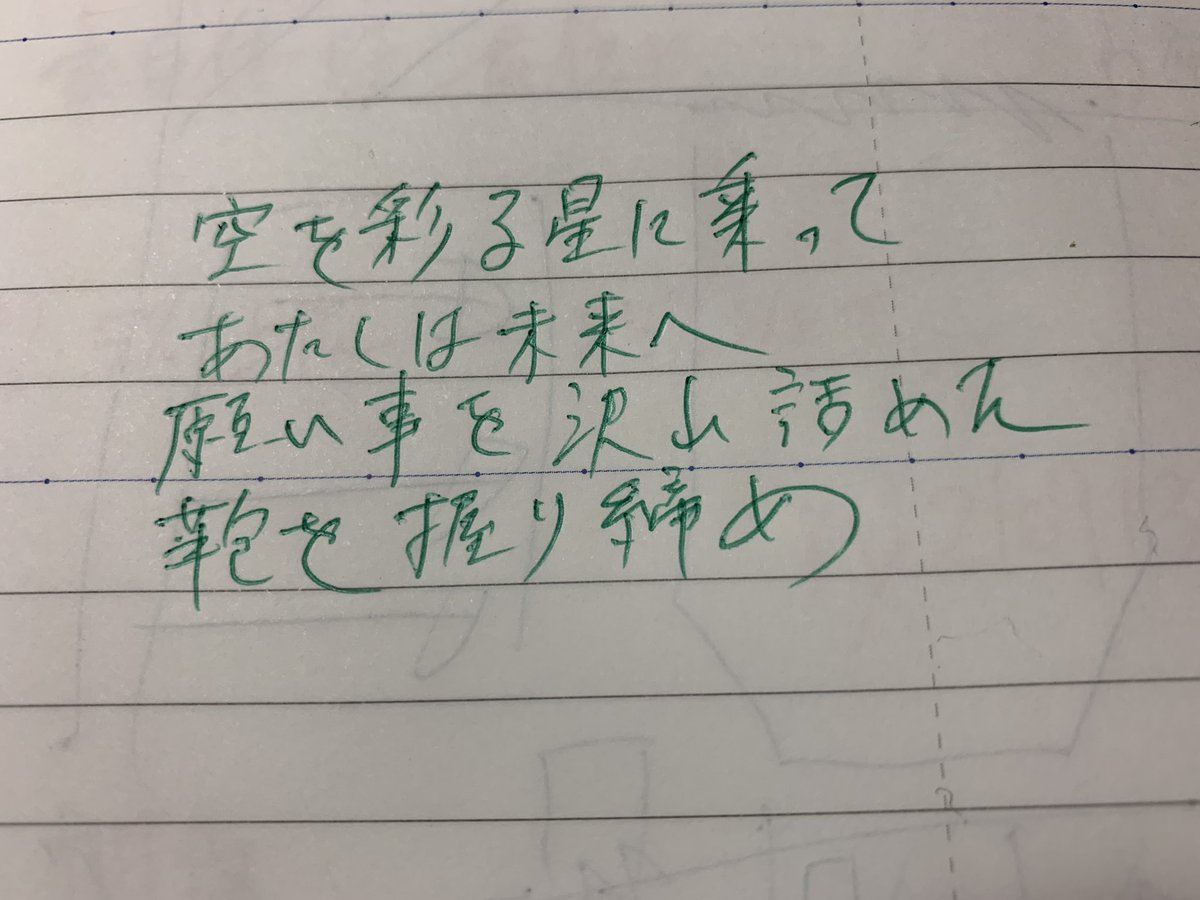 空を彩る星に乗って
あたしは未来へ
願い事を沢山詰めた
鞄を握り締め